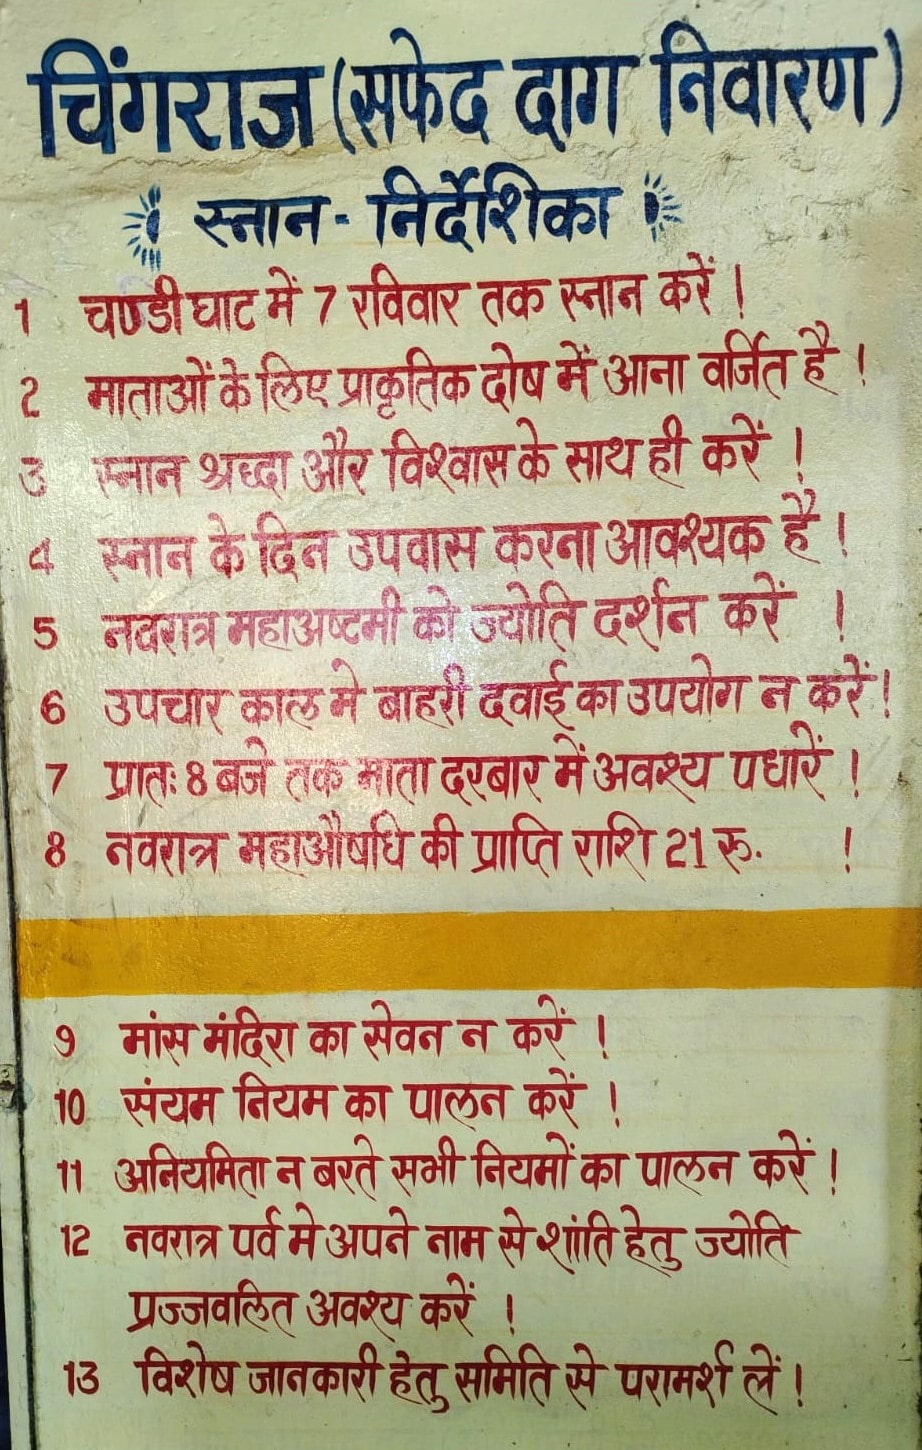 चिंगराज (सफेद दाग निवारण)
स्नान - निर्देशिका
1 चण्डी घाट में 7 रविवार तक स्नान करें !
2 माताओं के लिए प्राकृतिक दोष में आना वर्जित है !
3 स्नान श्रध्दा और विश्वास के साथ ही करें !
4 स्नान के दिन उपवास करना आवश्यक है !
5 नवरात्र महाअष्टमी को ज्योति दर्शन करें !
6 उपचार काल मे बाहरी दवाई का उपयोग न करें !
7 प्रातः 8 बजे तक माता दरबार में अवश्य पधारें !
8 नवरात्र महाऔषधि की प्राप्ति राशि 21 रू. !
9 मांस मंदिरा का सेवन न करें !
10 संयम नियम का पालन करें !
11 अनियमिता न बरते सभी नियमों का पालन करें !
12 नवरात्र पर्व मे अपने नाम से शांति हेतु ज्योति
प्रज्जवलित अवश्य करें !
13 विशेष जानकारी हेतु समिति से परामर्श लें !